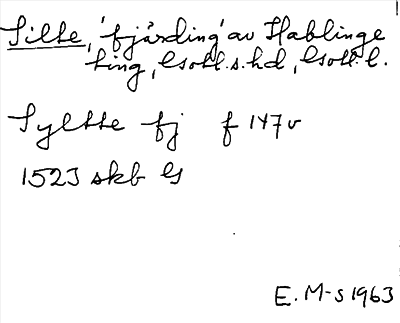 Silte, 'fjärding' av Hablinge
ting, Gotl. s. hd, Gotl. l.
Syltte fj f 147v
1523 skb G
E. M-s 1963